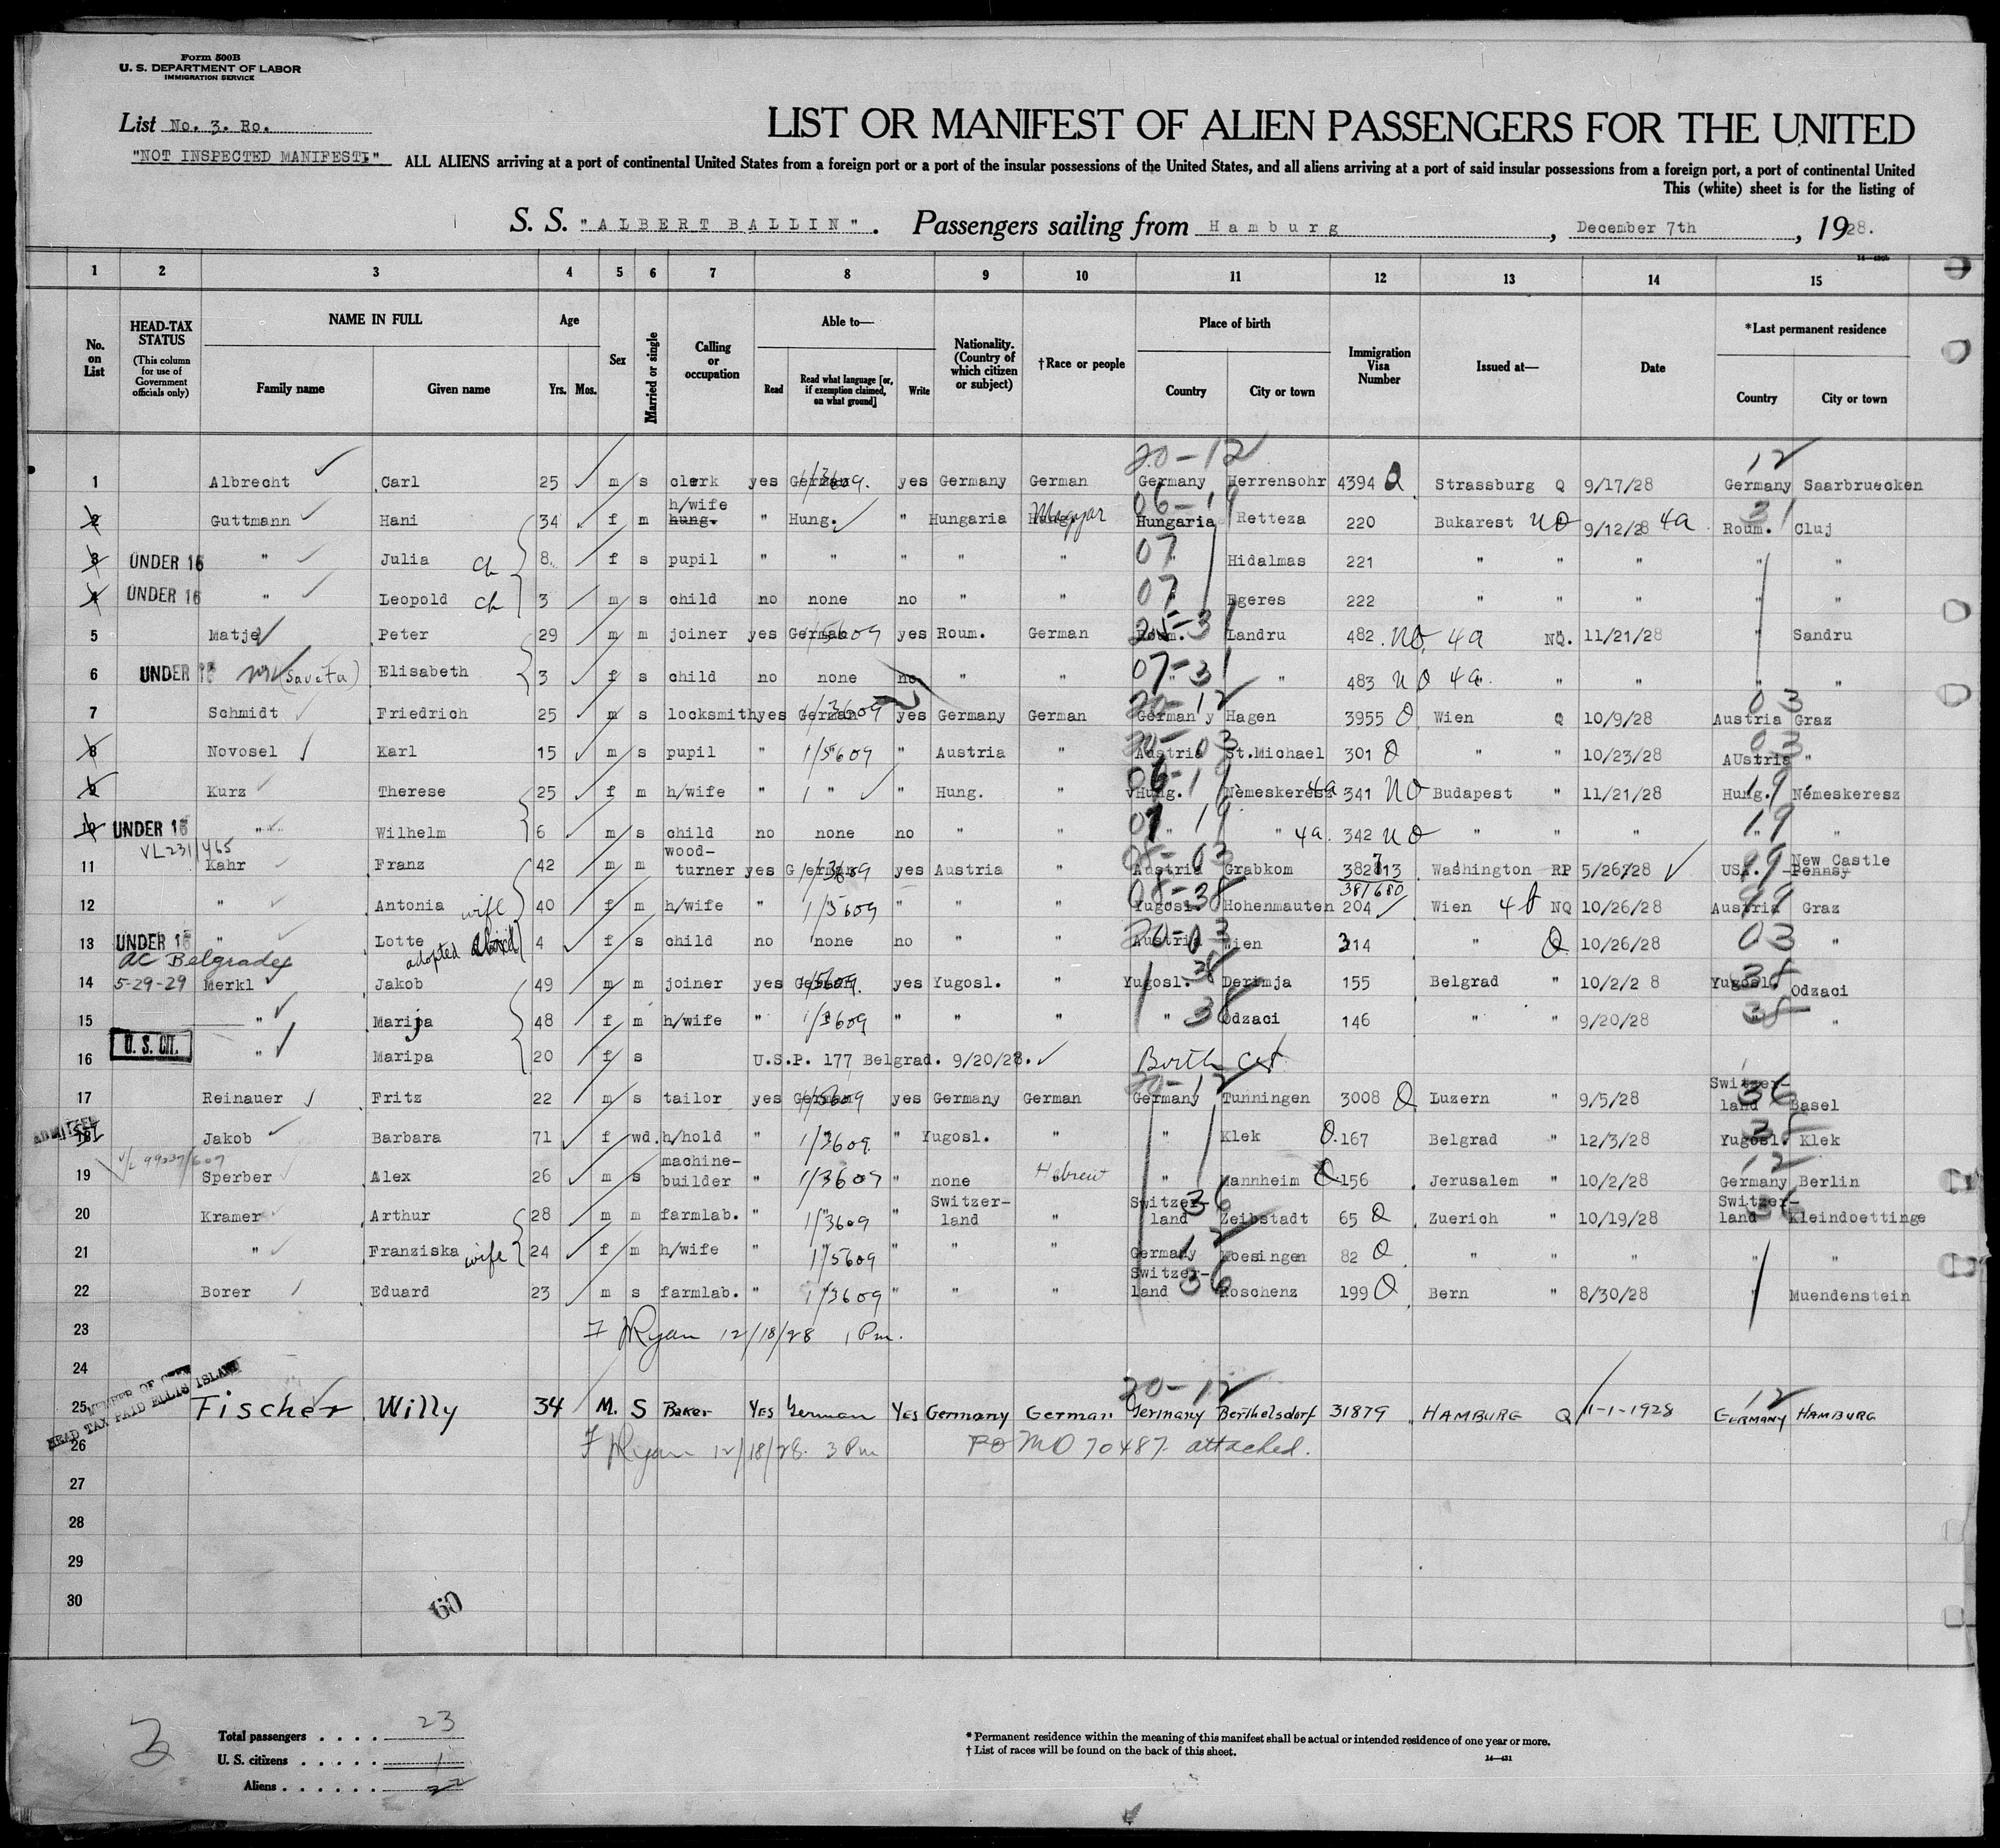 Form 500B
U. S. DEPARTMENT OF LABOR
IMMIGRATION SERVICE
List No. 3. Ro.
LIST OR MANIFEST OF ALIEN PASSENGERS FOR THE UNITED
"NOT INSPECTED MANIFEST." ALL ALIENS arriving at a port of continental United States from a foreign port or a port of the insular possessions of the United States, and all aliens arriving at a port of said insular possessions from a foreign port, a port of continental United
This (white) sheet is for the listing of
S. S. "ALBERT BALLIN". Passengers sailing from Hamburg, December 7th, 1928.
1 2 3 4 5 6 7 8 9 10 11 12 13 14 15
No. on List HEAD-TAX STATUS (This column for use of Government officials only) NAME IN FULL Family name Given name Age Yrs. Mos. Sex Married or single Calling or occupation Able to— Read Read what language [or, if exemption claimed, on what ground] Write Nationality. (Country of which citizen or subject) †Race or people Place of birth Country City or town Immigration Visa Number Issued at— Date *Last permanent residence Country City or town
20-12 12
1 Albrecht Carl 25 m s clerk yes German yes Germany German Germany Herrensohr 4394 Q Strassburg Q 9/17/28 Germany Saarbruecken
2 Guttmann Hani 34 f m h/wife hung. " Hung. " Hungaria Magyar 06-19 Hungaria Retteza 220 Bukarest NQ 9/12/28 4a Roum. 31 Cluj
3 UNDER 16 " Julia ch 8. f s pupil " " " " " 07 Hidalmas 221 " " " "
4 UNDER 16 " Leopold ch 3 m s child no none no " " 07 Egeres 222 " " " "
5 Matje Peter 29 m m joiner yes German yes Roum. German Roum. 25-31 Landru 482 NQ 4a NQ. 11/21/28 " Sandru
6 UNDER 16 (Saveta) Elisabeth 3 f s child no none no " " 07-31 " 483 NQ 4a. " " " "
7 Schmidt Friedrich 25 m s locksmith yes German yes Germany German 20-12 Germany Hagen 3955 Q Wien Q 10/9/28 03 Austria Graz
8 Novosel Karl 15 m s pupil " 1/3609 " Austria " 20-03 Austria St.Michael 301 Q " " 10/23/28 03 AUstria "
9 Kurz Therese 25 f m h/wife " " " Hung. " 06-19 Hung. Nemeskeresz 4a 341 NQ Budapest " 11/21/28 Hung. 19 Némeskeresz
10 UNDER 16 " Wilhelm 6 m s child no none no " " 07 19 " 4a. 342 NQ " " " 19 "
VL231/465
11 Kahr Franz 42 m m wood-turner yes German yes Austria " Austria Grabkom 382713 Washington RP 5/26/28 USA. 99 New Castle Pennsy
381680
12 " Antonia wife 40 f m h/wife " 1/3609 " " " 08-38 Yugosl. Hohenmauten 204 Wien 4f NQ 10/26/28 Austria Graz
13 UNDER 16 " Lotte adopted 4 f s child no none no " " 20-03 Austria Wien 314 " Q 10/26/28 03 "
AC Belgrade
14 5-29-29 Merkl Jakob 49 m m joiner yes German. yes Yugosl. " Yugosl. 38 Derimja 155 Belgrad " 10/2/28 Yugosl. 38 Odzaci
15 " Marija 48 f m h/wife " 1/3609 " " " " 38 Odzaci 146 " " 9/20/28 38 "
16 U. S. CIT. " Maripa 20 f s U.S.P. 177 Belgrad. 9/20/28. Birth Cert
17 Reinauer Fritz 22 m s tailor yes German yes Germany German 20-12 Germany Tunningen 3008 Q Luzern " 9/5/28 Switzer-land 36 Basel
ADMITTED
18 Jakob Barbara 71 f wd. h/hold " 1/3609 " Yugosl. " " Klek Q 167 Belgrad " 12/3/28 Yugosl. 38 Klek
19 Sperber Alex 26 m s machine-builder " 1/3609 " none Hebrew " Mannheim Q 156 Jerusalem " 10/2/28 12 Germany Berlin
20 Kramer Arthur 28 m m farmlab. " 1/3609 " Switzer-land " Switzer-land 36 Zeibstadt 65 Q Zuerich " 10/19/28 Switzer-land 36 Kleindoettinge
21 " Franziska wife 24 f m h/wife " 1/3609 " " " Germany 12 Moesingen 82 Q " " " " "
22 Borer Eduard 23 m s farmlab. " 1/3609 " " " Switzer-land 36 Roschenz 199 Q Bern " 8/30/28 Muendenstein
23 F J Ryan 12/18/28 1 Pm.
24
MEMBER OF CREW
HEAD TAX PAID ELLIS ISLAND
20-12 12
25 Fischer Willy 34 M. S Baker Yes German Yes Germany German Germany Berthelsdorf 31879 HAMBURG Q 11-1-1928 GERMANY HAMBURG
26 F J Ryan 12/18/28. 3 Pm POMO 70487 attached.
27
28
29
30
60
3
Total passengers . . . . 23
U. S. citizens . . . . . 1
Aliens . . . . . . 22
* Permanent residence within the meaning of this manifest shall be actual or intended residence of one year or more.
† List of races will be found on the back of this sheet.
14—431